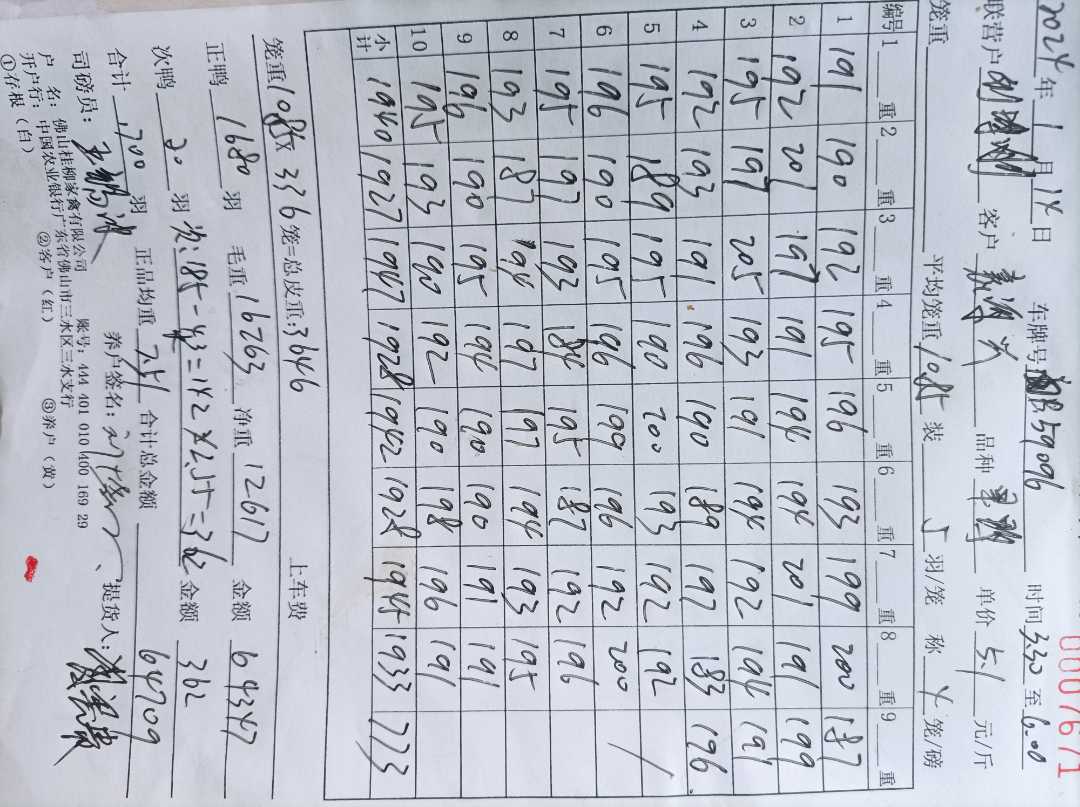 0007671
2024年1月14日 车牌号 59096 时间 3:30 至 6:00
联营户 客户 品种 单价 5.1 元/斤
笼重 平均笼重 10.85 装 5 羽/笼 称 4 笼/磅
编号 1 重 2 重 3 重 4 重 5 重 6 重 7 重 8 重 9 重
1 191 190 192 195 196 193 199 200 187
2 192 201 197 191 194 194 201 191 199
3 195 197 205 193 191 194 192 194 191
4 192 193 191 196 190 189 197 183 196
5 195 189 195 190 200 193 192 192 /
6 196 190 195 196 199 196 192 200 /
7 195 197 193 184 195 187 192 196
8 193 187 194 197 197 194 193 195
9 196 190 195 194 190 190 191 191
10 195 193 190 192 190 198 196 191
小计 1940 1927 1947 1928 1942 1928 1945 1933 773
笼重 10.85 数 336 笼=总皮重:3646 上车费
正鸭 1680 羽 毛重 16263 净重 12617 金额 64347
次鸭 20 羽 次:185-43=142×2.55=362 金额 362
合计 1700 羽 正品均重 7.51 合计总金额 64709
司磅员: 养户签名: 提货人:
户 名: 佛山桂柳家禽有限公司 账号: 444 401 010 400 169 29
开户行: 中国农业银行广东省佛山市三水区三水支行
①存根(白) ②客户(红) ③养户(黄)